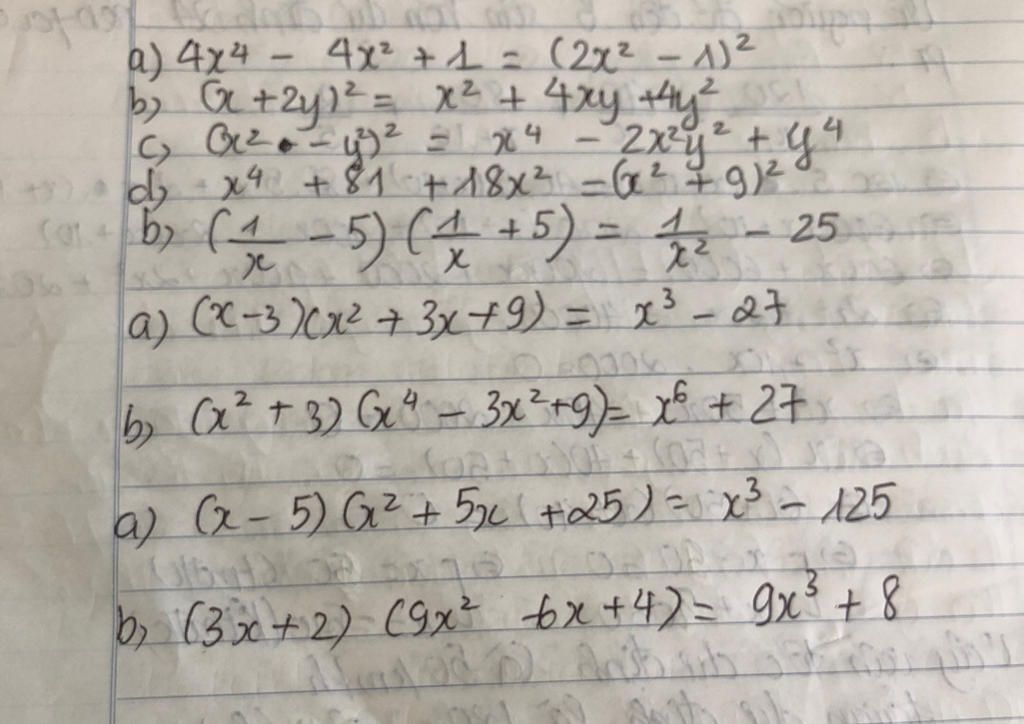 a) 4x⁴ - 4x² + 1 = (2x² - 1)²
b) (x + 2y)² = x² + 4xy + 4y²
c) (x² - y²)² = x⁴ - 2x²y² + y⁴
d) x⁴ + 81 + 18x² = (x² + 9)²
b) (1/x - 5) (1/x + 5) = 1/x² - 25
a) (x - 3)(x² + 3x + 9) = x³ - 27
b) (x² + 3) (x⁴ - 3x² + 9) = x⁶ + 27
a) (x - 5) (x² + 5x + 25) = x³ - 125
b) (3x + 2) (9x² - 6x + 4) = 9x³ + 8